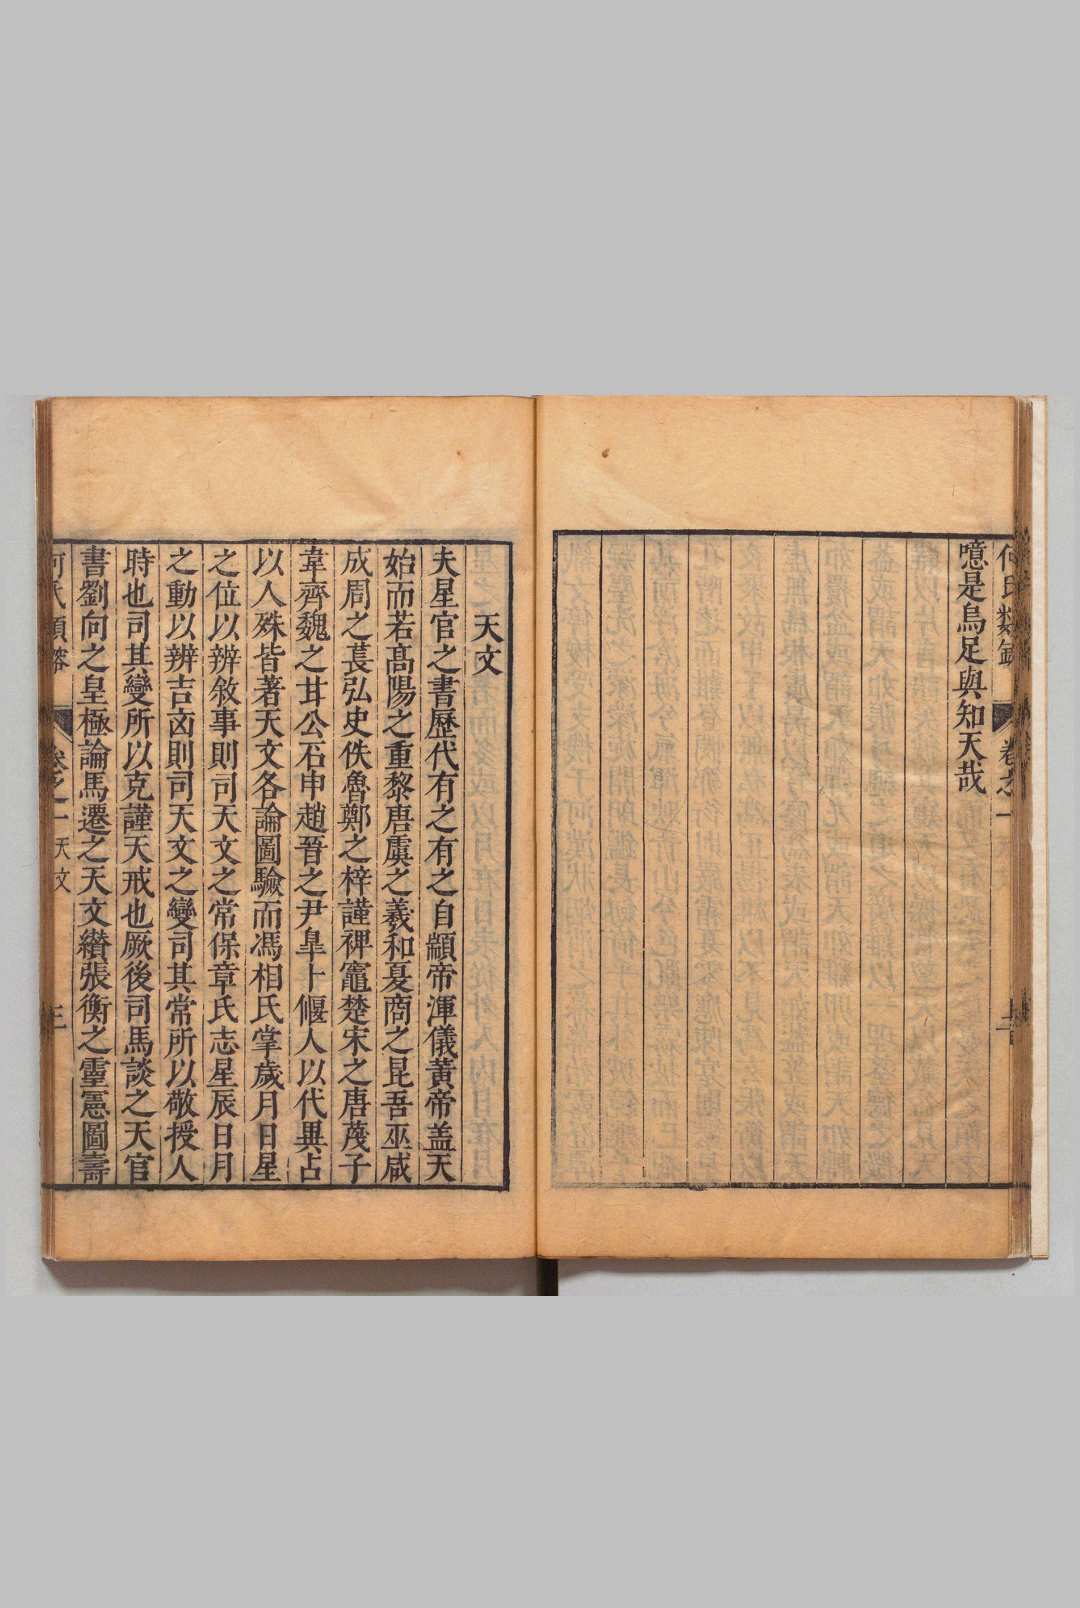 何氏類鎔 卷之一
噫是烏足與知天哉
天文
夫星官之書歷代有之有之自顓帝渾儀黃帝盖天
始而若髙陽之重黎唐虞之羲和夏商之昆吾巫咸
成周之萇弘史佚魯鄭之梓謹禆竈楚宋之唐蔑子
韋齊魏之甘公石申趙晉之尹臯十偃人以代異占
以人殊皆著天文各論圖驗而馮相氏掌歲月日星
之位以辨敘事則司天文之常保章氏志星辰日月
之動以辨吉凶則司天文之變司其常所以敬授人
時也司其變所以克謹天戒也厥後司馬談之天官
書劉向之皇極論馬遷之天文纉張衡之靈憲圖壽
何氏類鎔 卷之一 天文 三